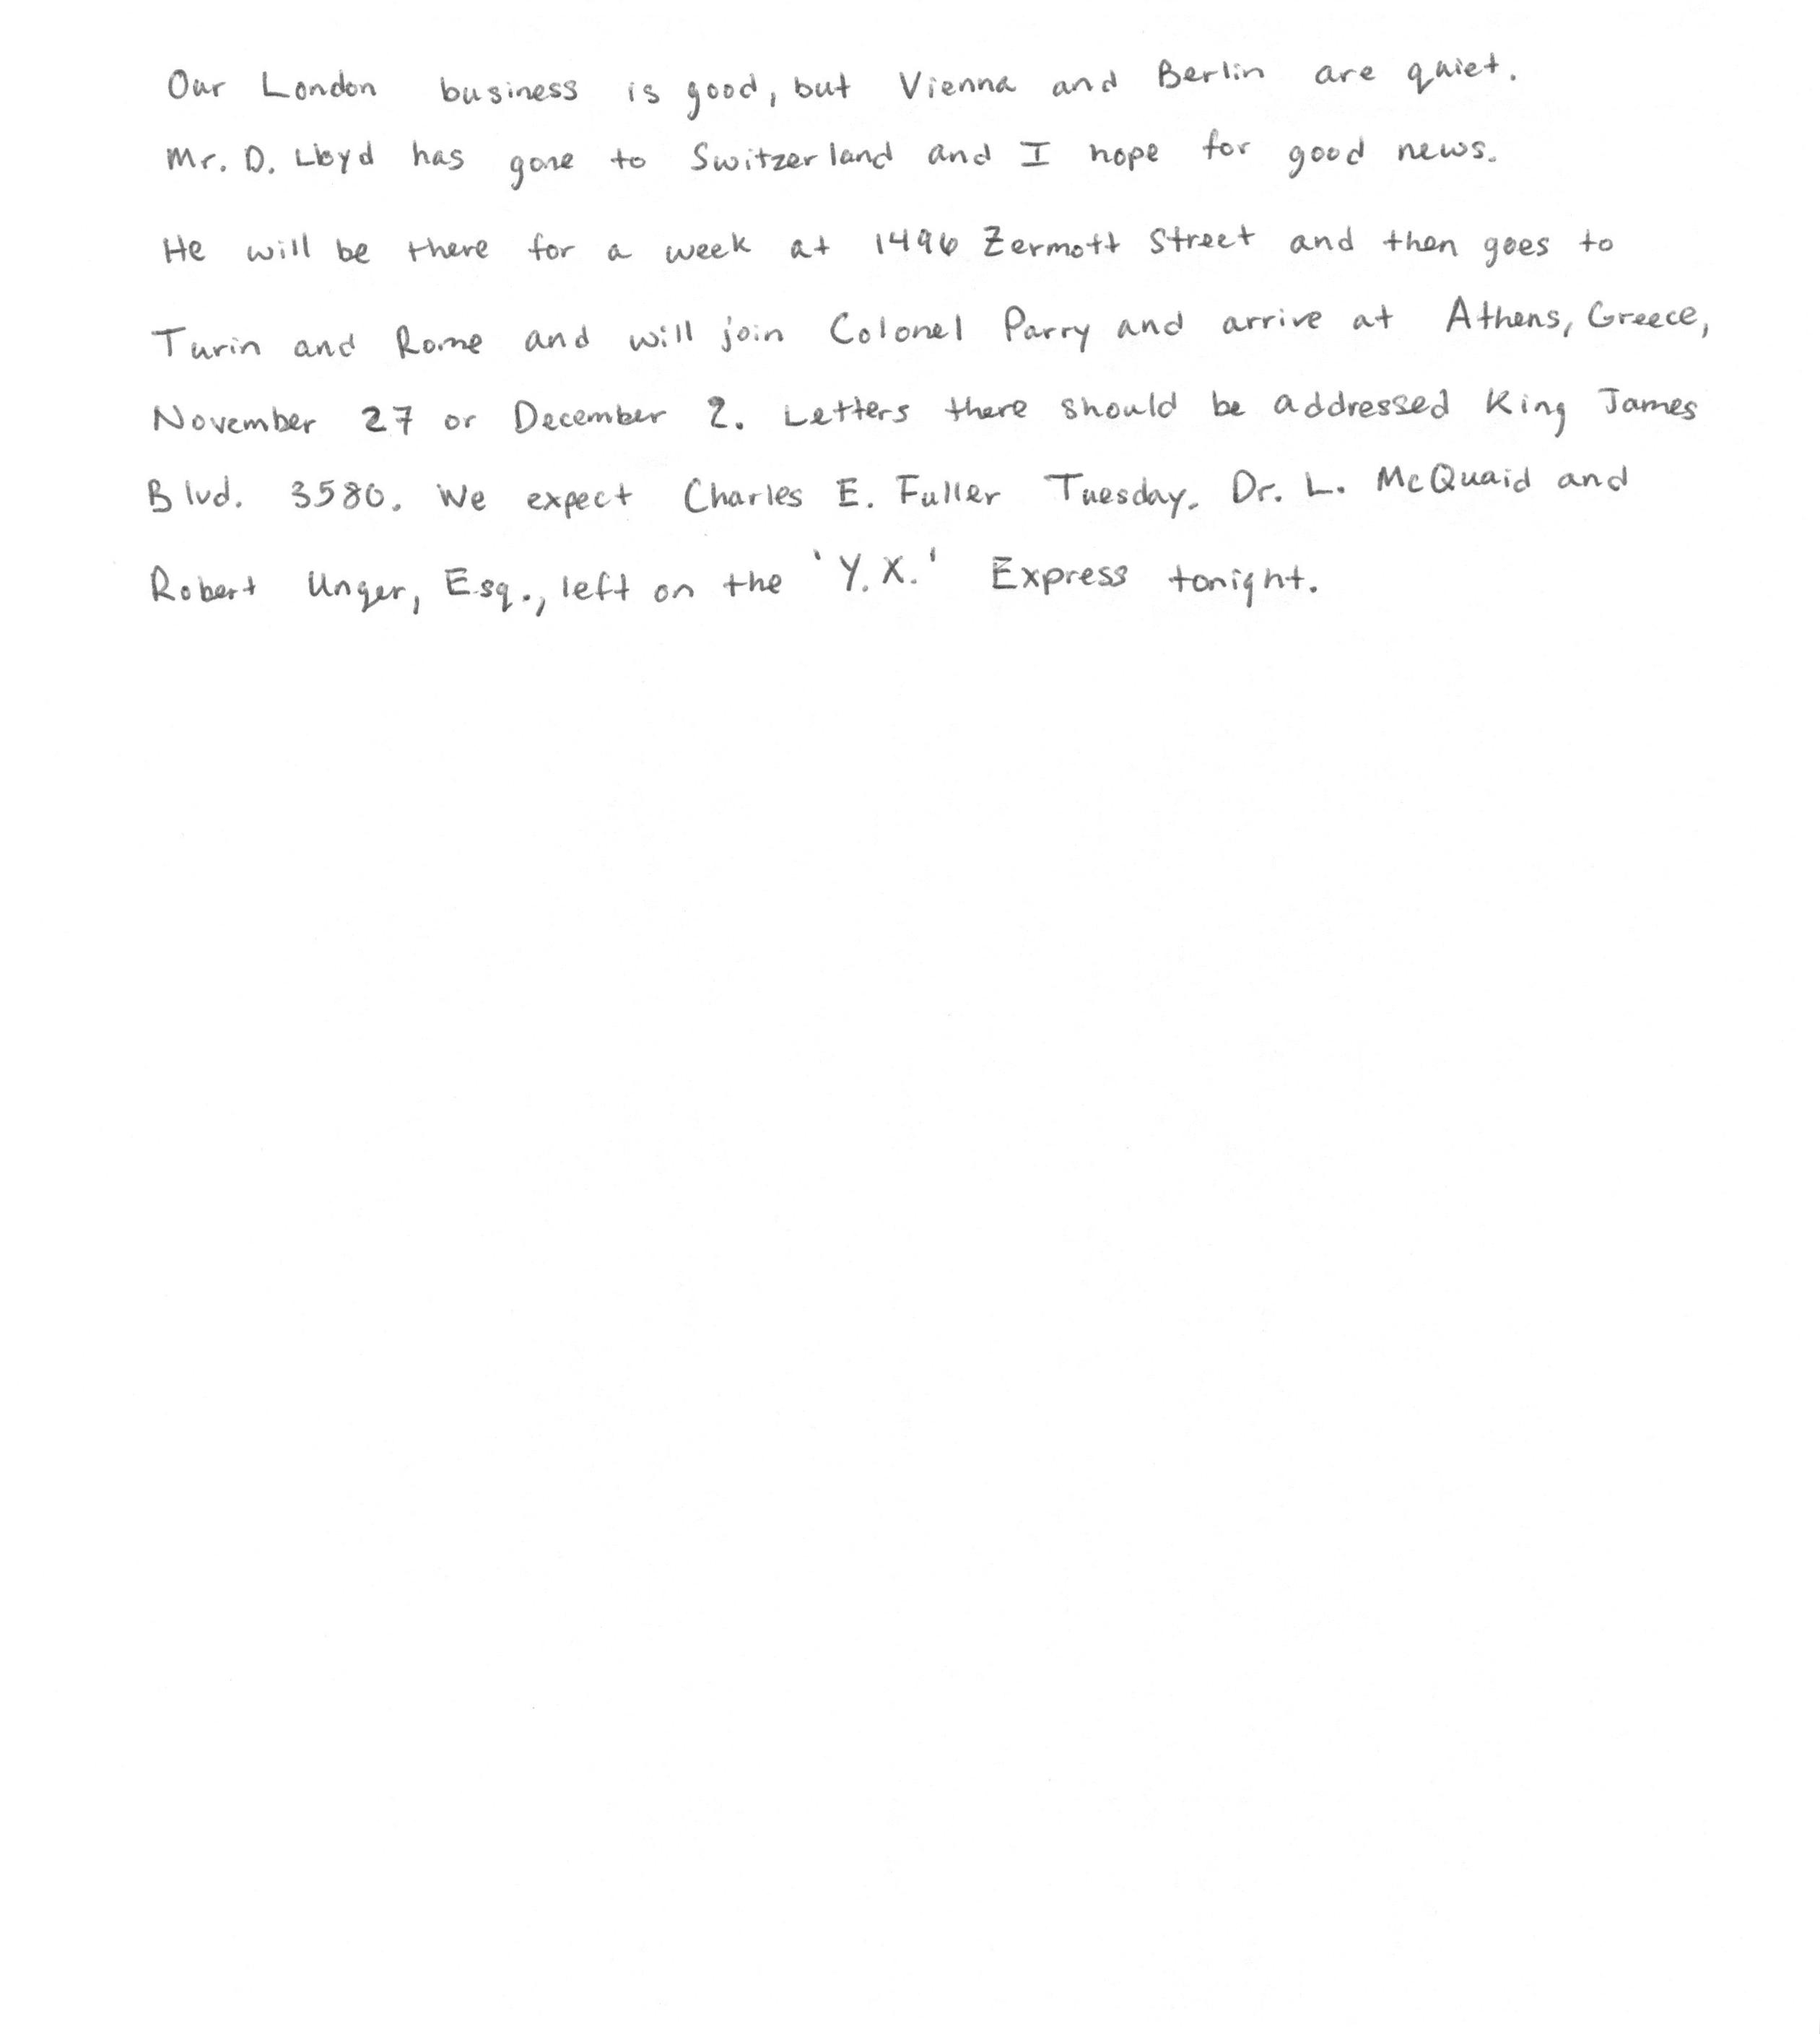 Our London business is good, but Vienna and Berlin are quiet.
Mr. D. Lloyd has gone to Switzerland and I hope for good news.
He will be there for a week at 1496 Zermott Street and then goes to
Turin and Rome and will join Colonel Parry and arrive at Athens, Greece,
November 27 or December 2. Letters there should be addressed King James
Blvd. 3580. We expect Charles E. Fuller Tuesday. Dr. L. McQuaid and
Robert Unger, Esq., left on the 'Y.X.' Express tonight.